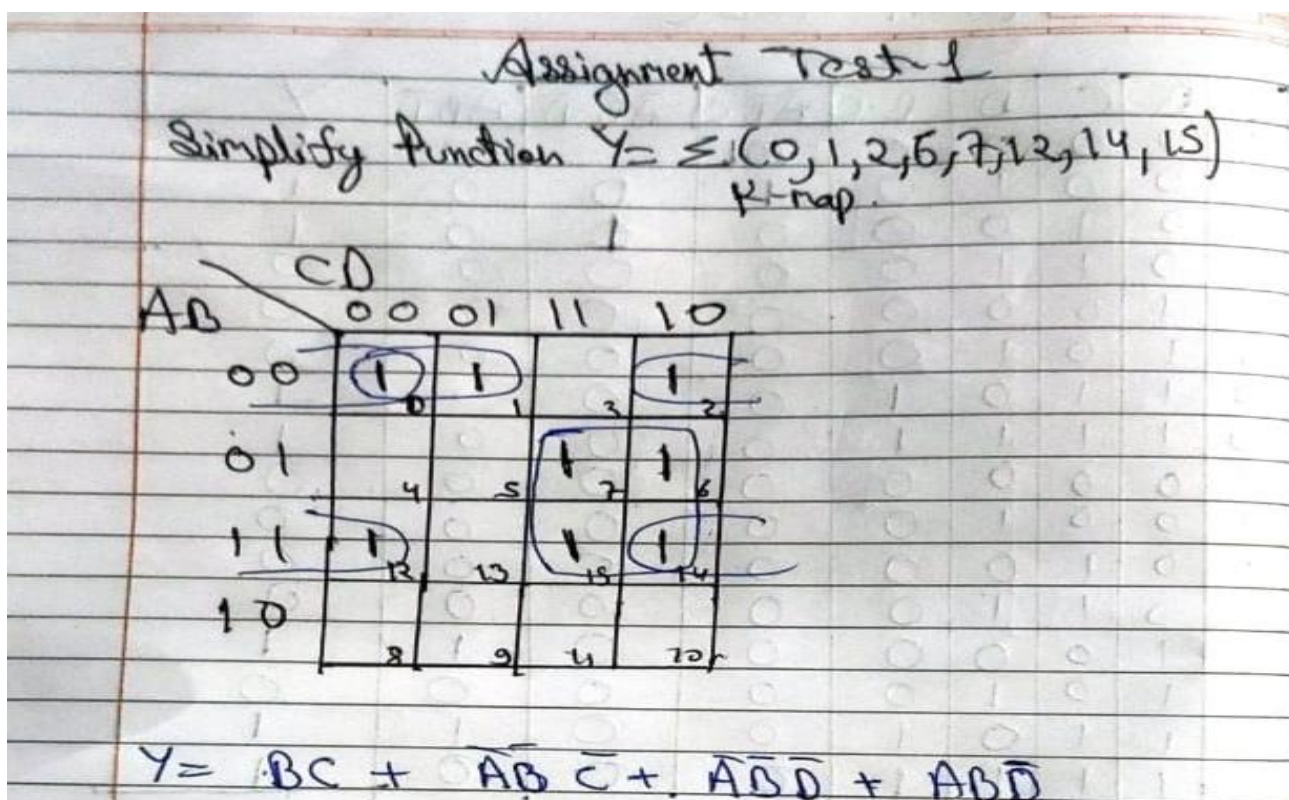 Assignment Test-1
Simplify function Y= Σ(0,1,2,6,7,12,14,15)
K-map.
CD
AB 00 01 11 10
00 1 0 1 1 3 1 2
01 4 5 1 7 1 6
11 1 12 13 1 15 1 14
10 8 9 11 10
Y= BC + A̅B̅ C̅ + A̅B̅D̅ + ABD̅